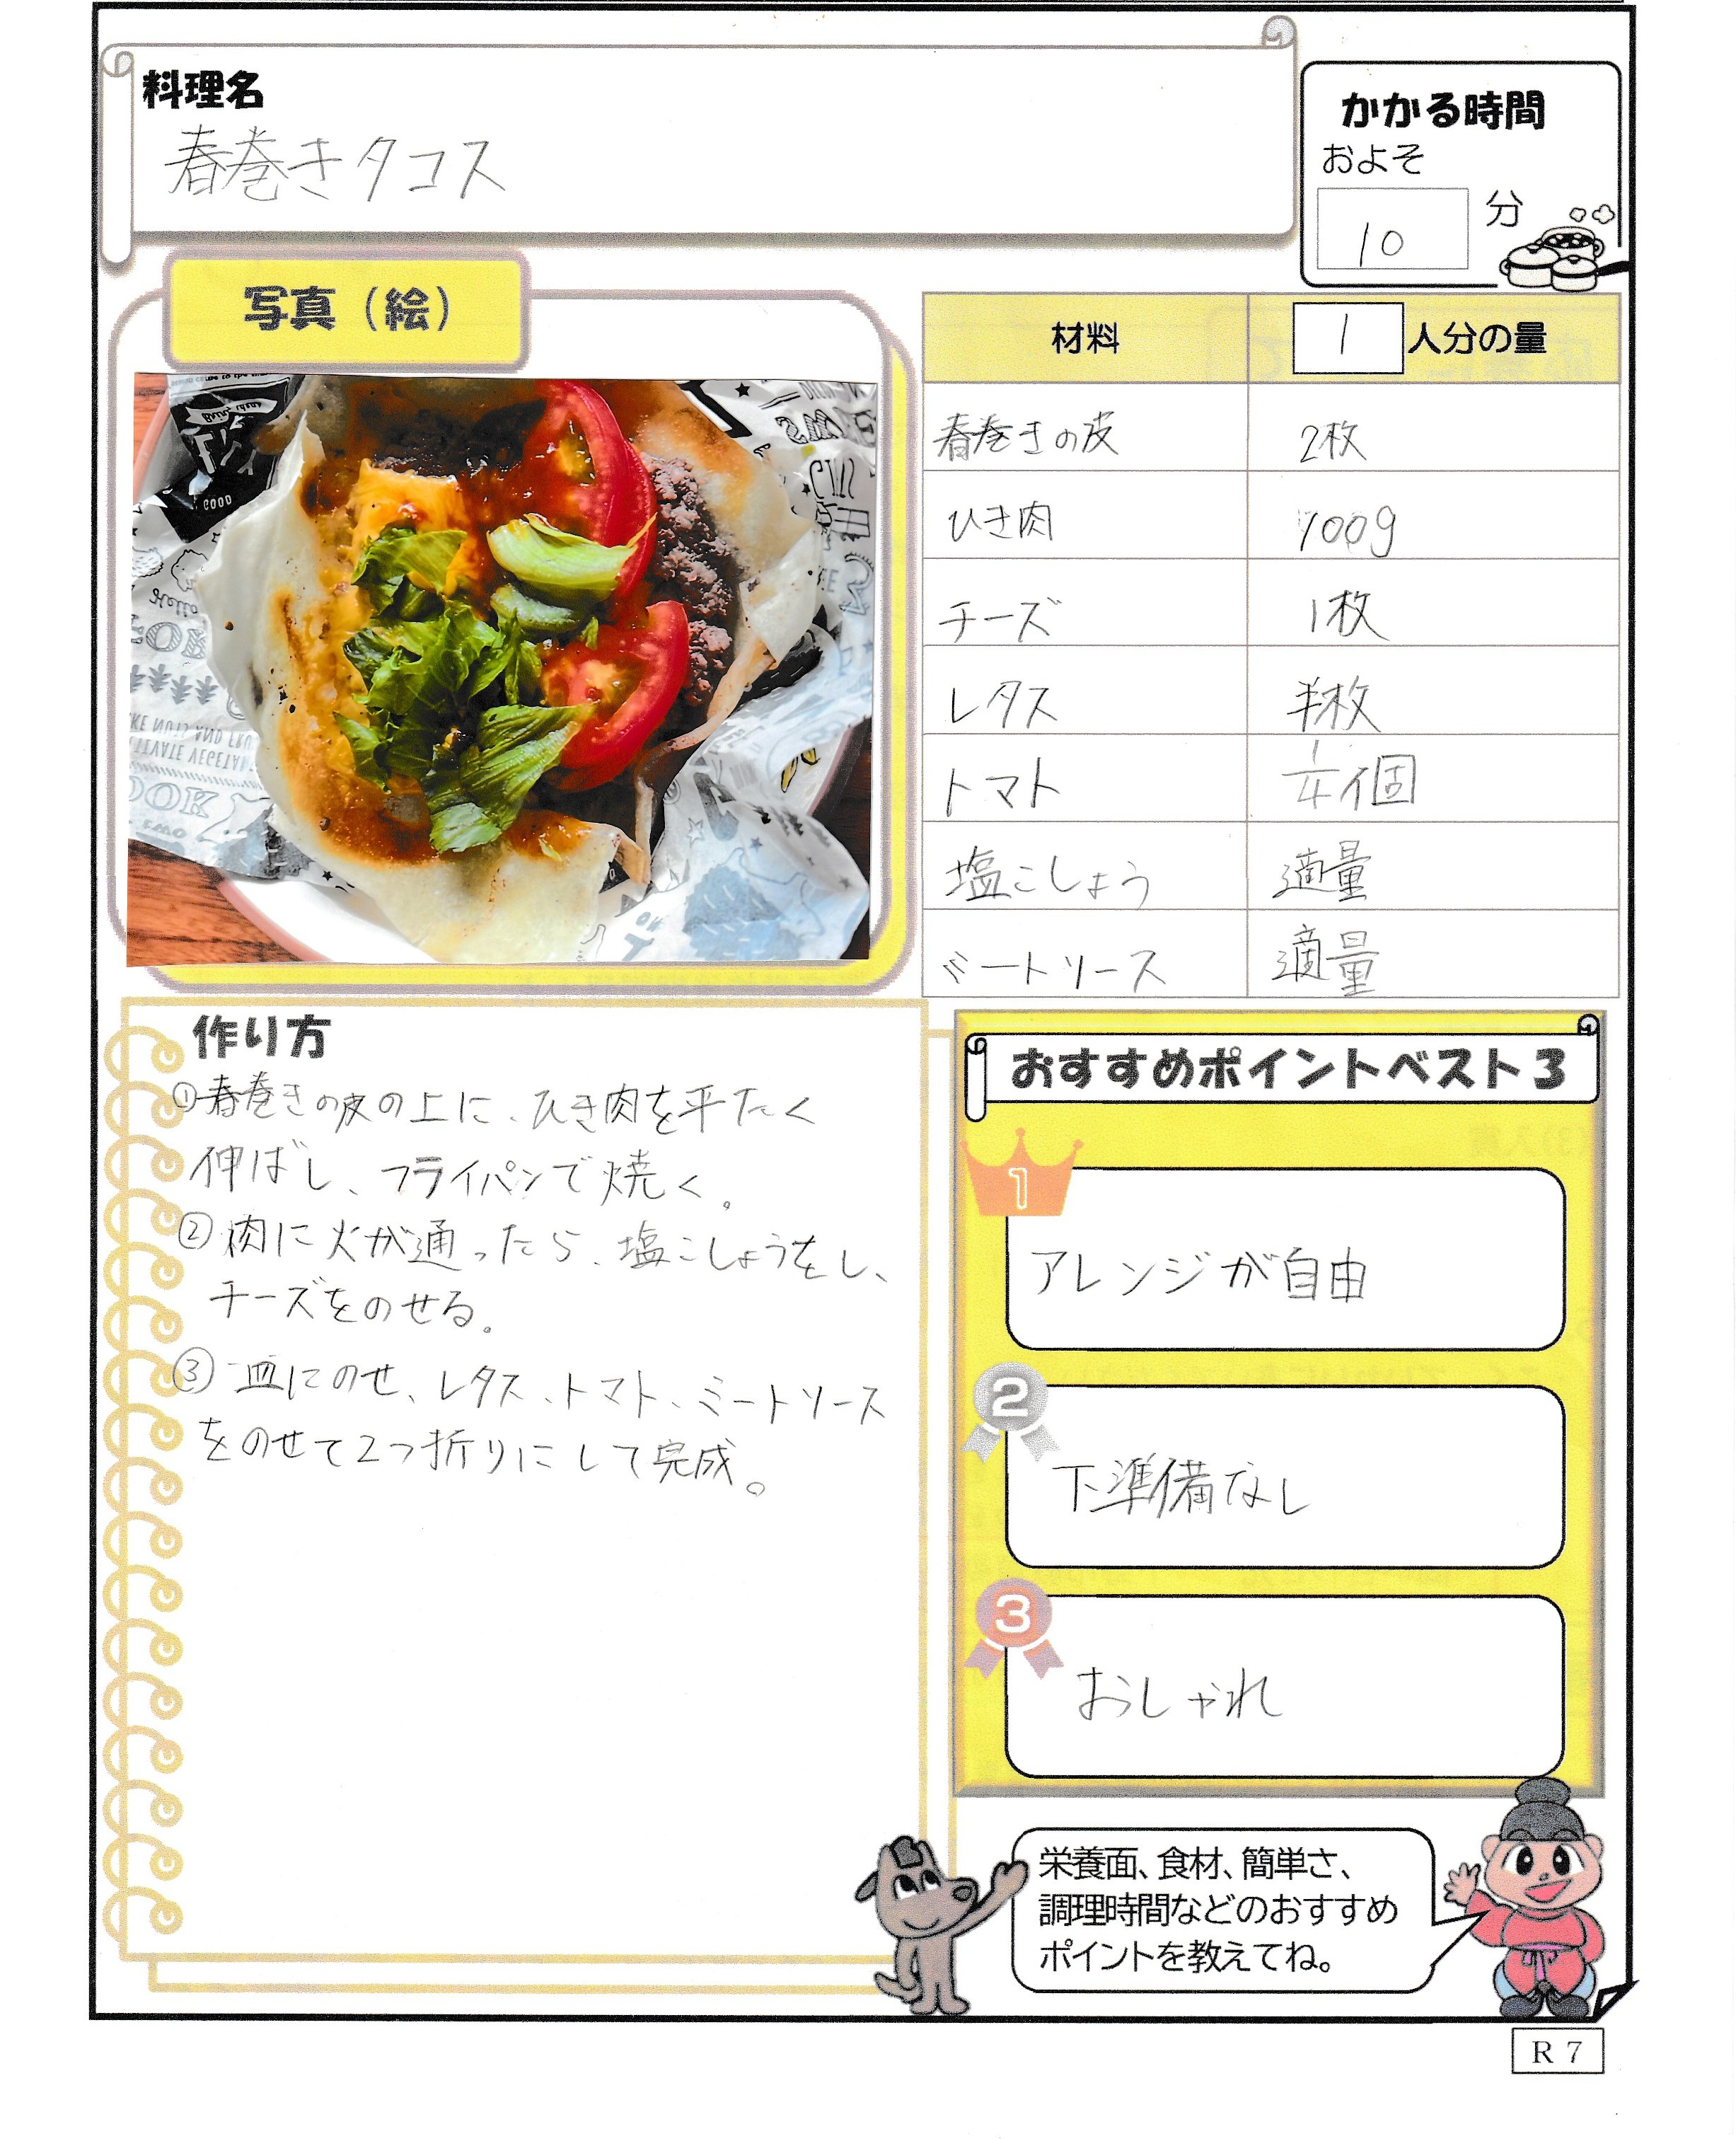 料理名
春巻きタコス
かかる時間
およそ
10 分
写真（絵）
材料 1 人分の量
春巻きの皮 2枚
ひき肉 100g
チーズ 1枚
レタス 半枚
トマト 1/4個
塩こしょう 適量
ミートソース 適量
作り方
①春巻きの皮の上に、ひき肉を平たく
伸ばし、フライパンで焼く。
②肉に火が通ったら、塩こしょうをし、
チーズをのせる。
③皿にのせ、レタス、トマト、ミートソース
をのせて2つ折りにして完成。
おすすめポイントベスト3
1
アレンジが自由
2
下準備なし
3
おしゃれ
栄養面、食材、簡単さ、
調理時間などのおすすめ
ポイントを教えてね。
R7